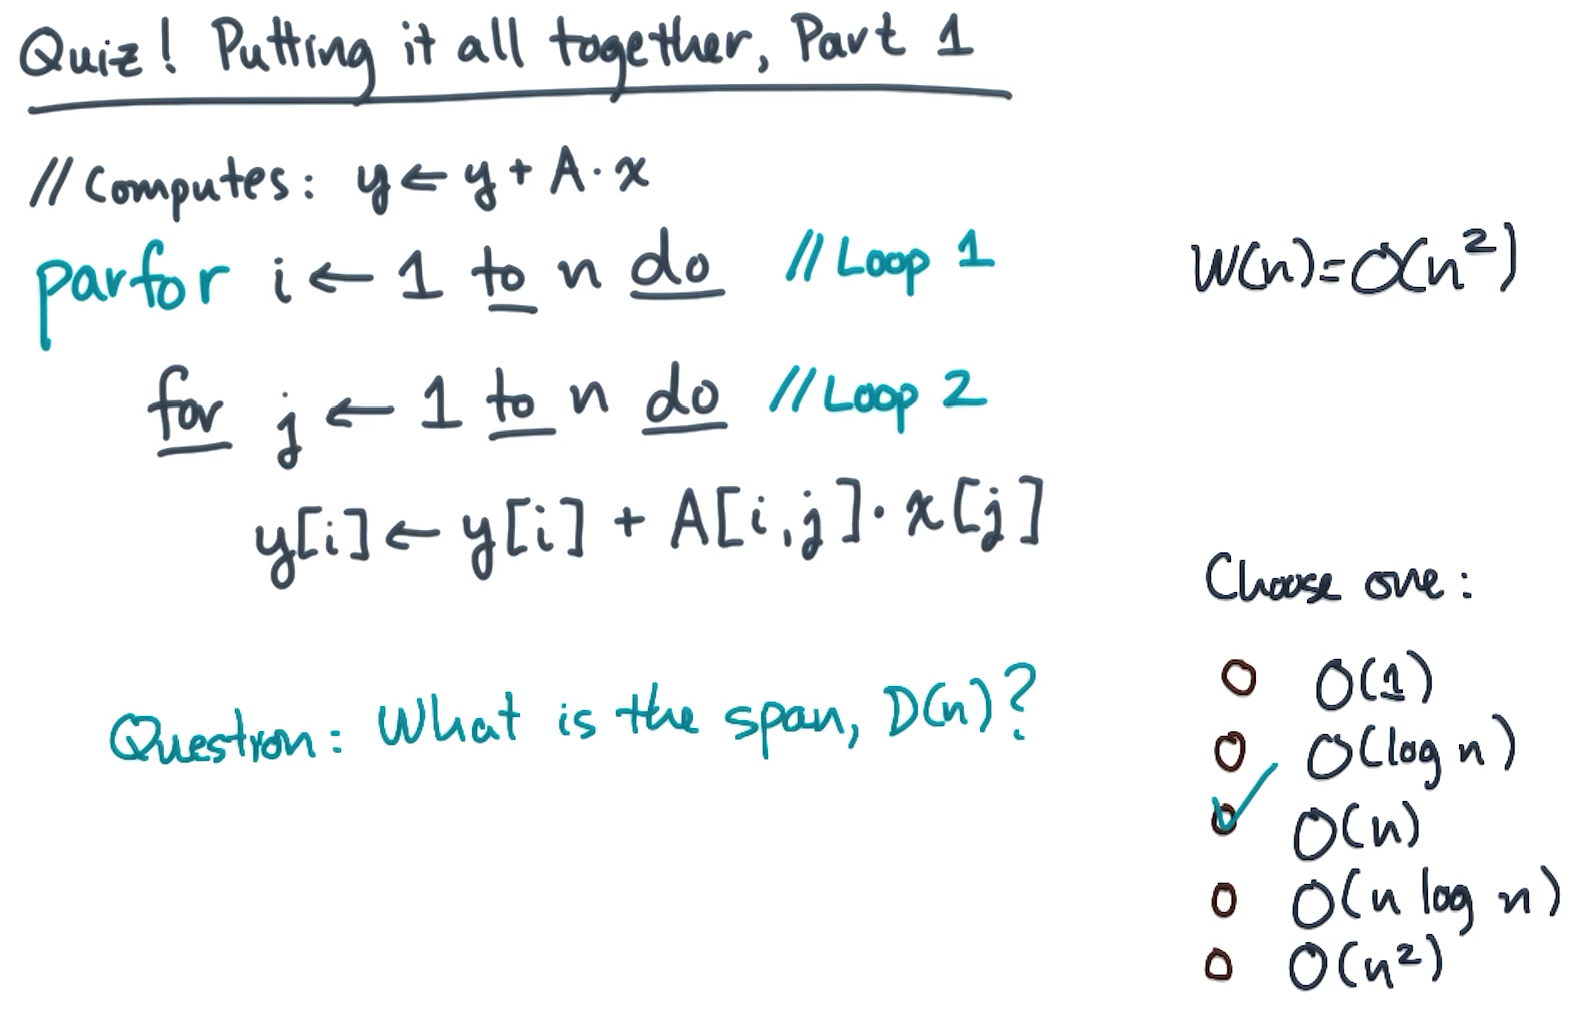 Quiz! Putting it all together, Part 1
// Computes: y ← y + A · x
parfor i ← 1 to n do // Loop 1
W(n)=O(n²)
for j ← 1 to n do // Loop 2
y[i] ← y[i] + A[i,j] · x[j]
Choose one:
Question: What is the span, D(n)?
O(1)
O(log n)
O(n)
O(n log n)
O(n²)